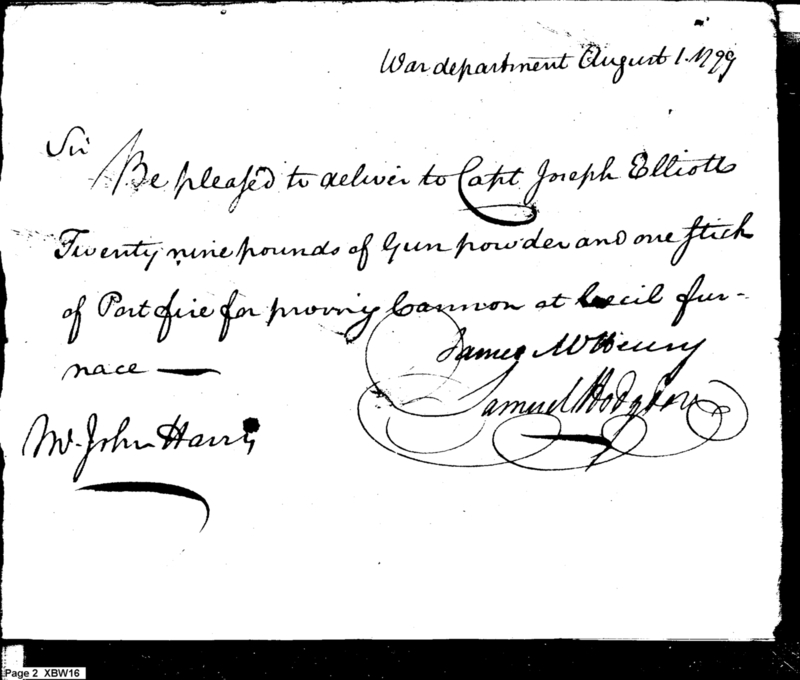 War department August 1. 1799
Sir
Be pleased to deliver to Capt Joseph Elliott
Twenty nine pounds of Gun powder and one stick
of Port fire for proving Cannon at Cecil fur-
nace —
James McHenry
Samuel Hodgdon
Mr. John Harris
Page 2 XBW16